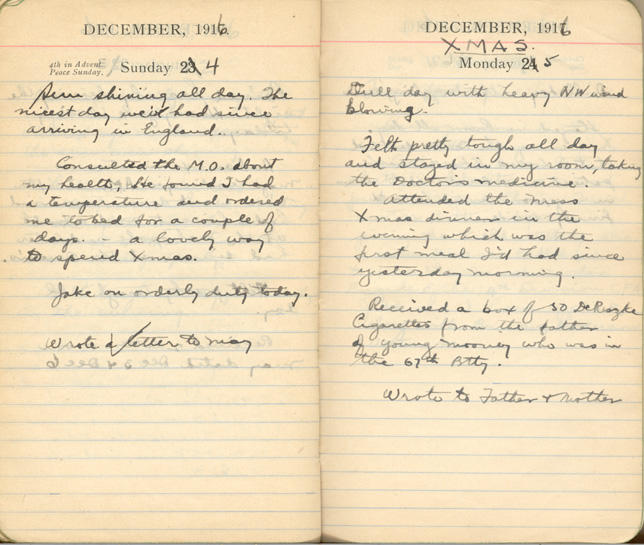 DECEMBER, 1916
4th in Advent.
Peace Sunday.
Sunday 24
Sun shining all day. The
nicest day we'd had since
arriving in England.
Consulted the M.O. about
my health, he found I had
a temperature and ordered
me to bed for a couple of
days. - a lovely way
to spend Xmas.
Jake on orderly duty today.
Wrote a letter to May
DECEMBER, 1916
XMAS.
Monday 25
Dull day with heavy NW wind
blowing.
Felt pretty tough all day
and stayed in my room, taking
the Doctor's medicine.
Attended the mess
Xmas dinner in the
evening which was the
first meal I'd had since
yesterday morning.
Received a box of 50 DeRezke
Cigarettes from the father
of young Mooney who was in
the 67th Btty.
Wrote to Father & Mother